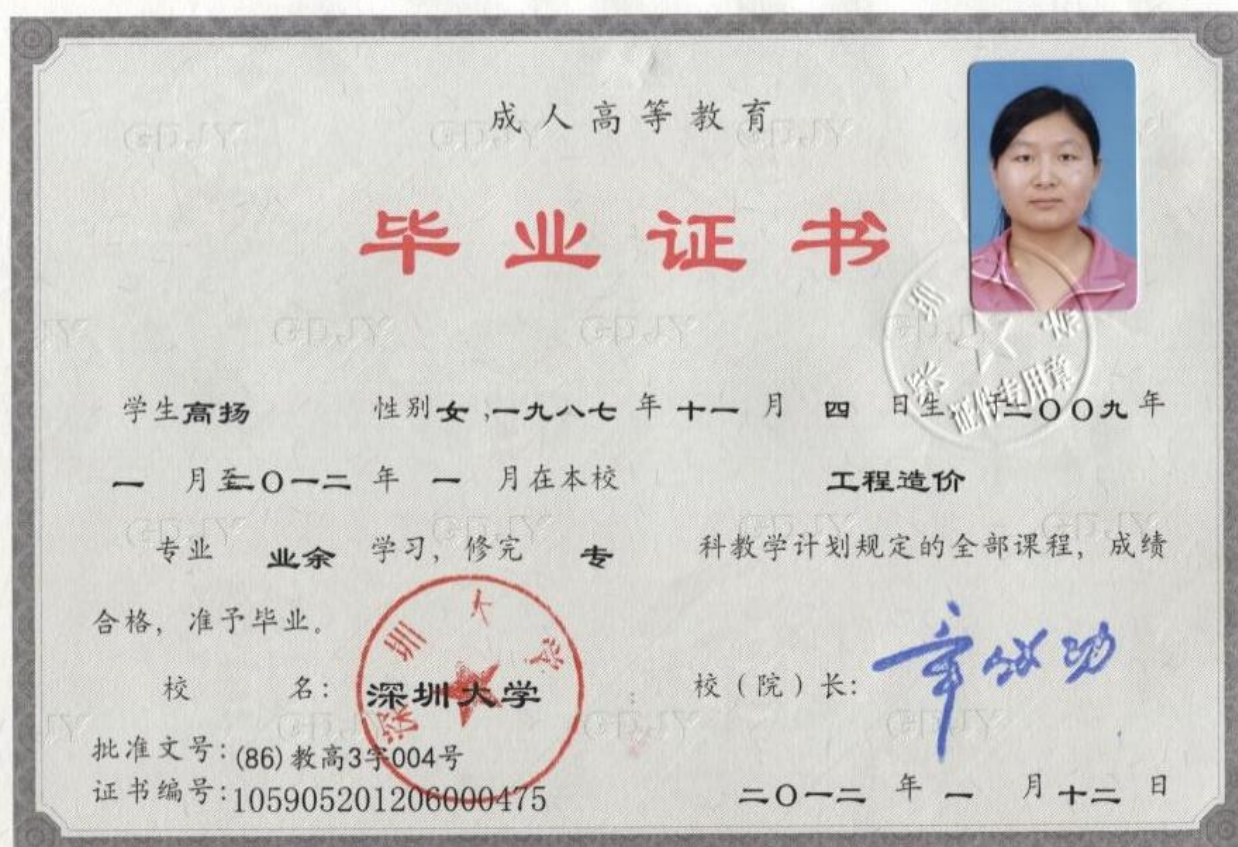 成人高等教育
毕业证书
学生高扬 性别女,一九八七年十一月四日生,于二〇〇九年
一月至二〇一二年一月在本校 工程造价
专业 业余 学习,修完 专 科教学计划规定的全部课程,成绩
合格,准予毕业。
校 名:深圳大学 校(院)长:章必功
批准文号:(86)教高3字004号
证书编号:105905201206000475 二〇一二年一月十二日
深圳大学
深圳大学
证件专用章
GDJY